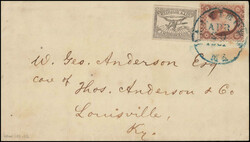 W. Geo. Anderson Esq
care of Thos. Anderson & Co
Louisville,
Ky.